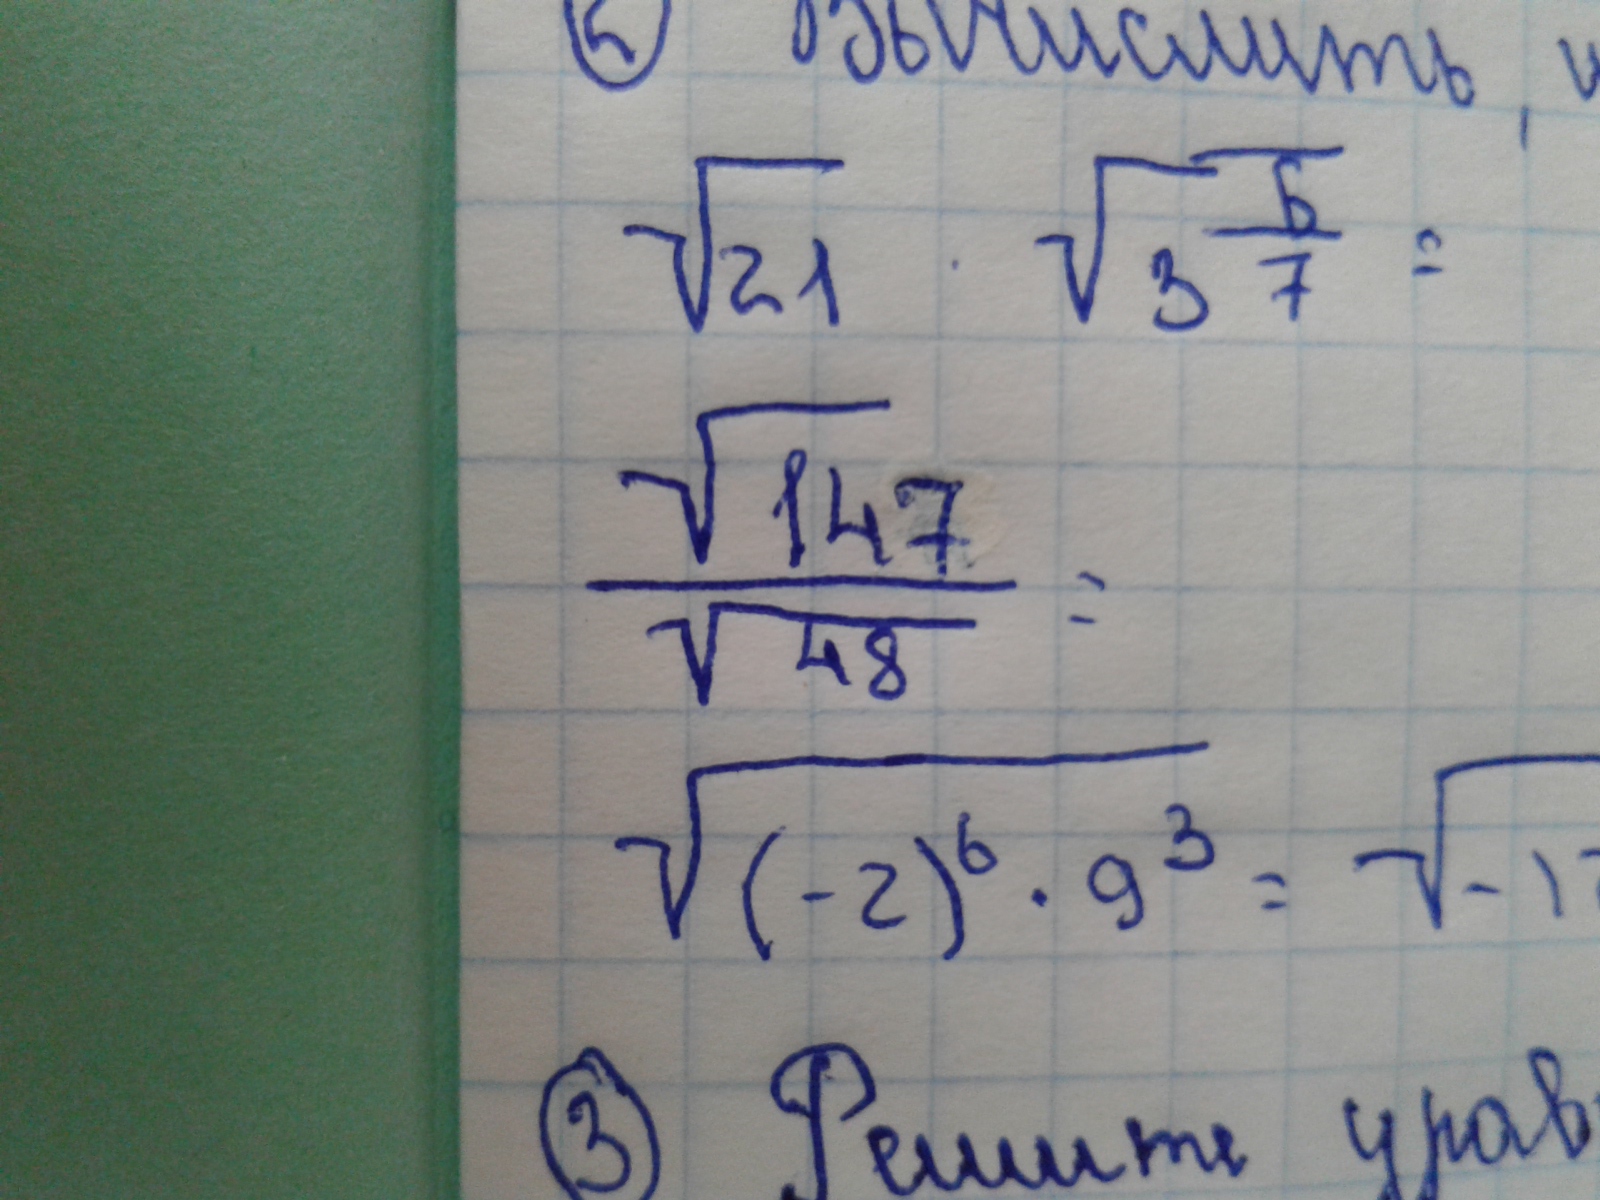 ② Вычислить, и
√21 · √3 6/7 =
√147 / √48 =
√(-2)⁶ · 9³ = √-17
③ Решите урав